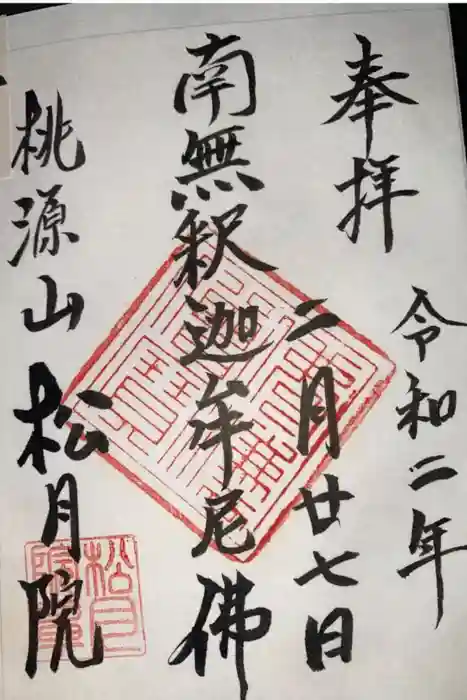 奉拝
令和二年
二月廿七日
南無釈迦牟尼佛
桃源山 松月院
松月院